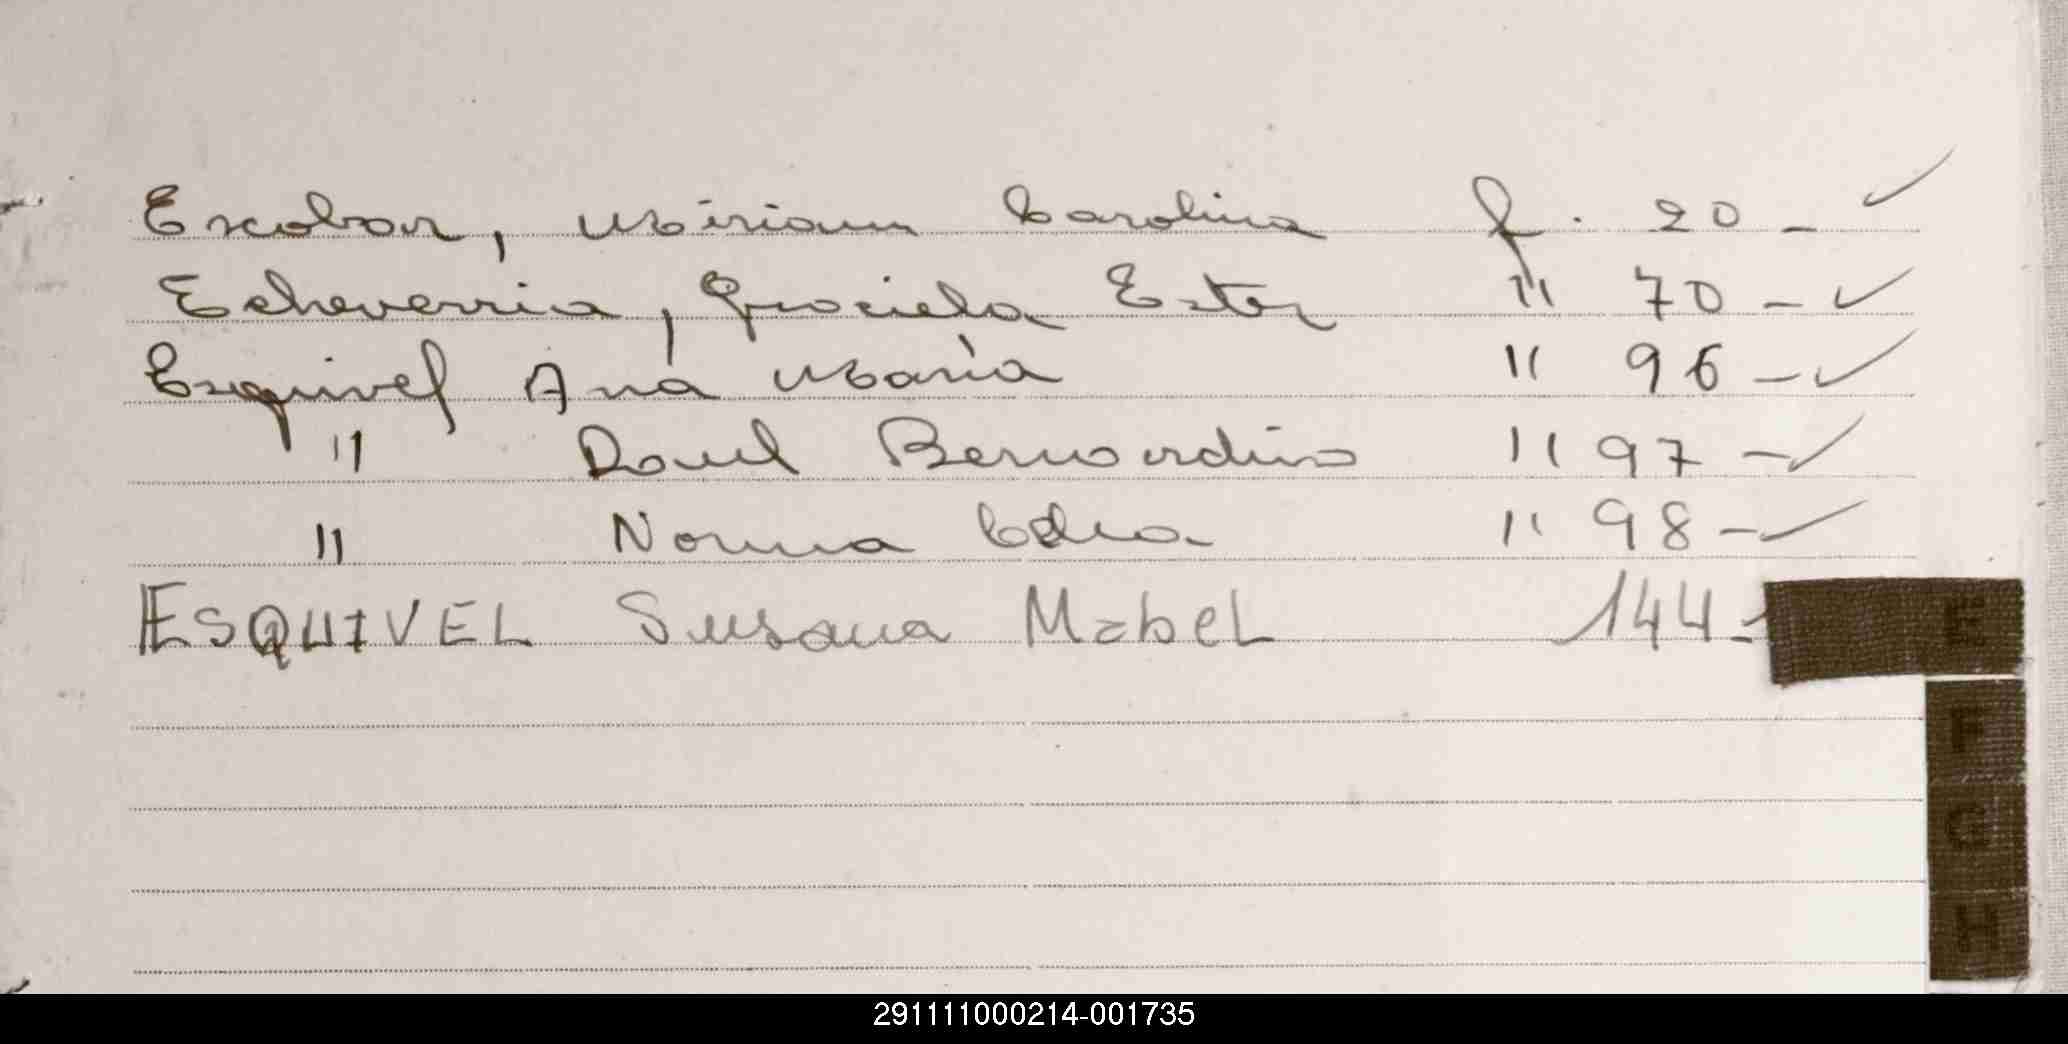 Escobar, Miriam Carolina f. 20 -
Echeverria, Graciela Ester " 70 -
Esquivel Ana María " 96 -
" Bernardino " 97 -
" Norma " 98 -
ESQUIVEL Susana MabeL 144-
E
F
G
H
291111000214-001735